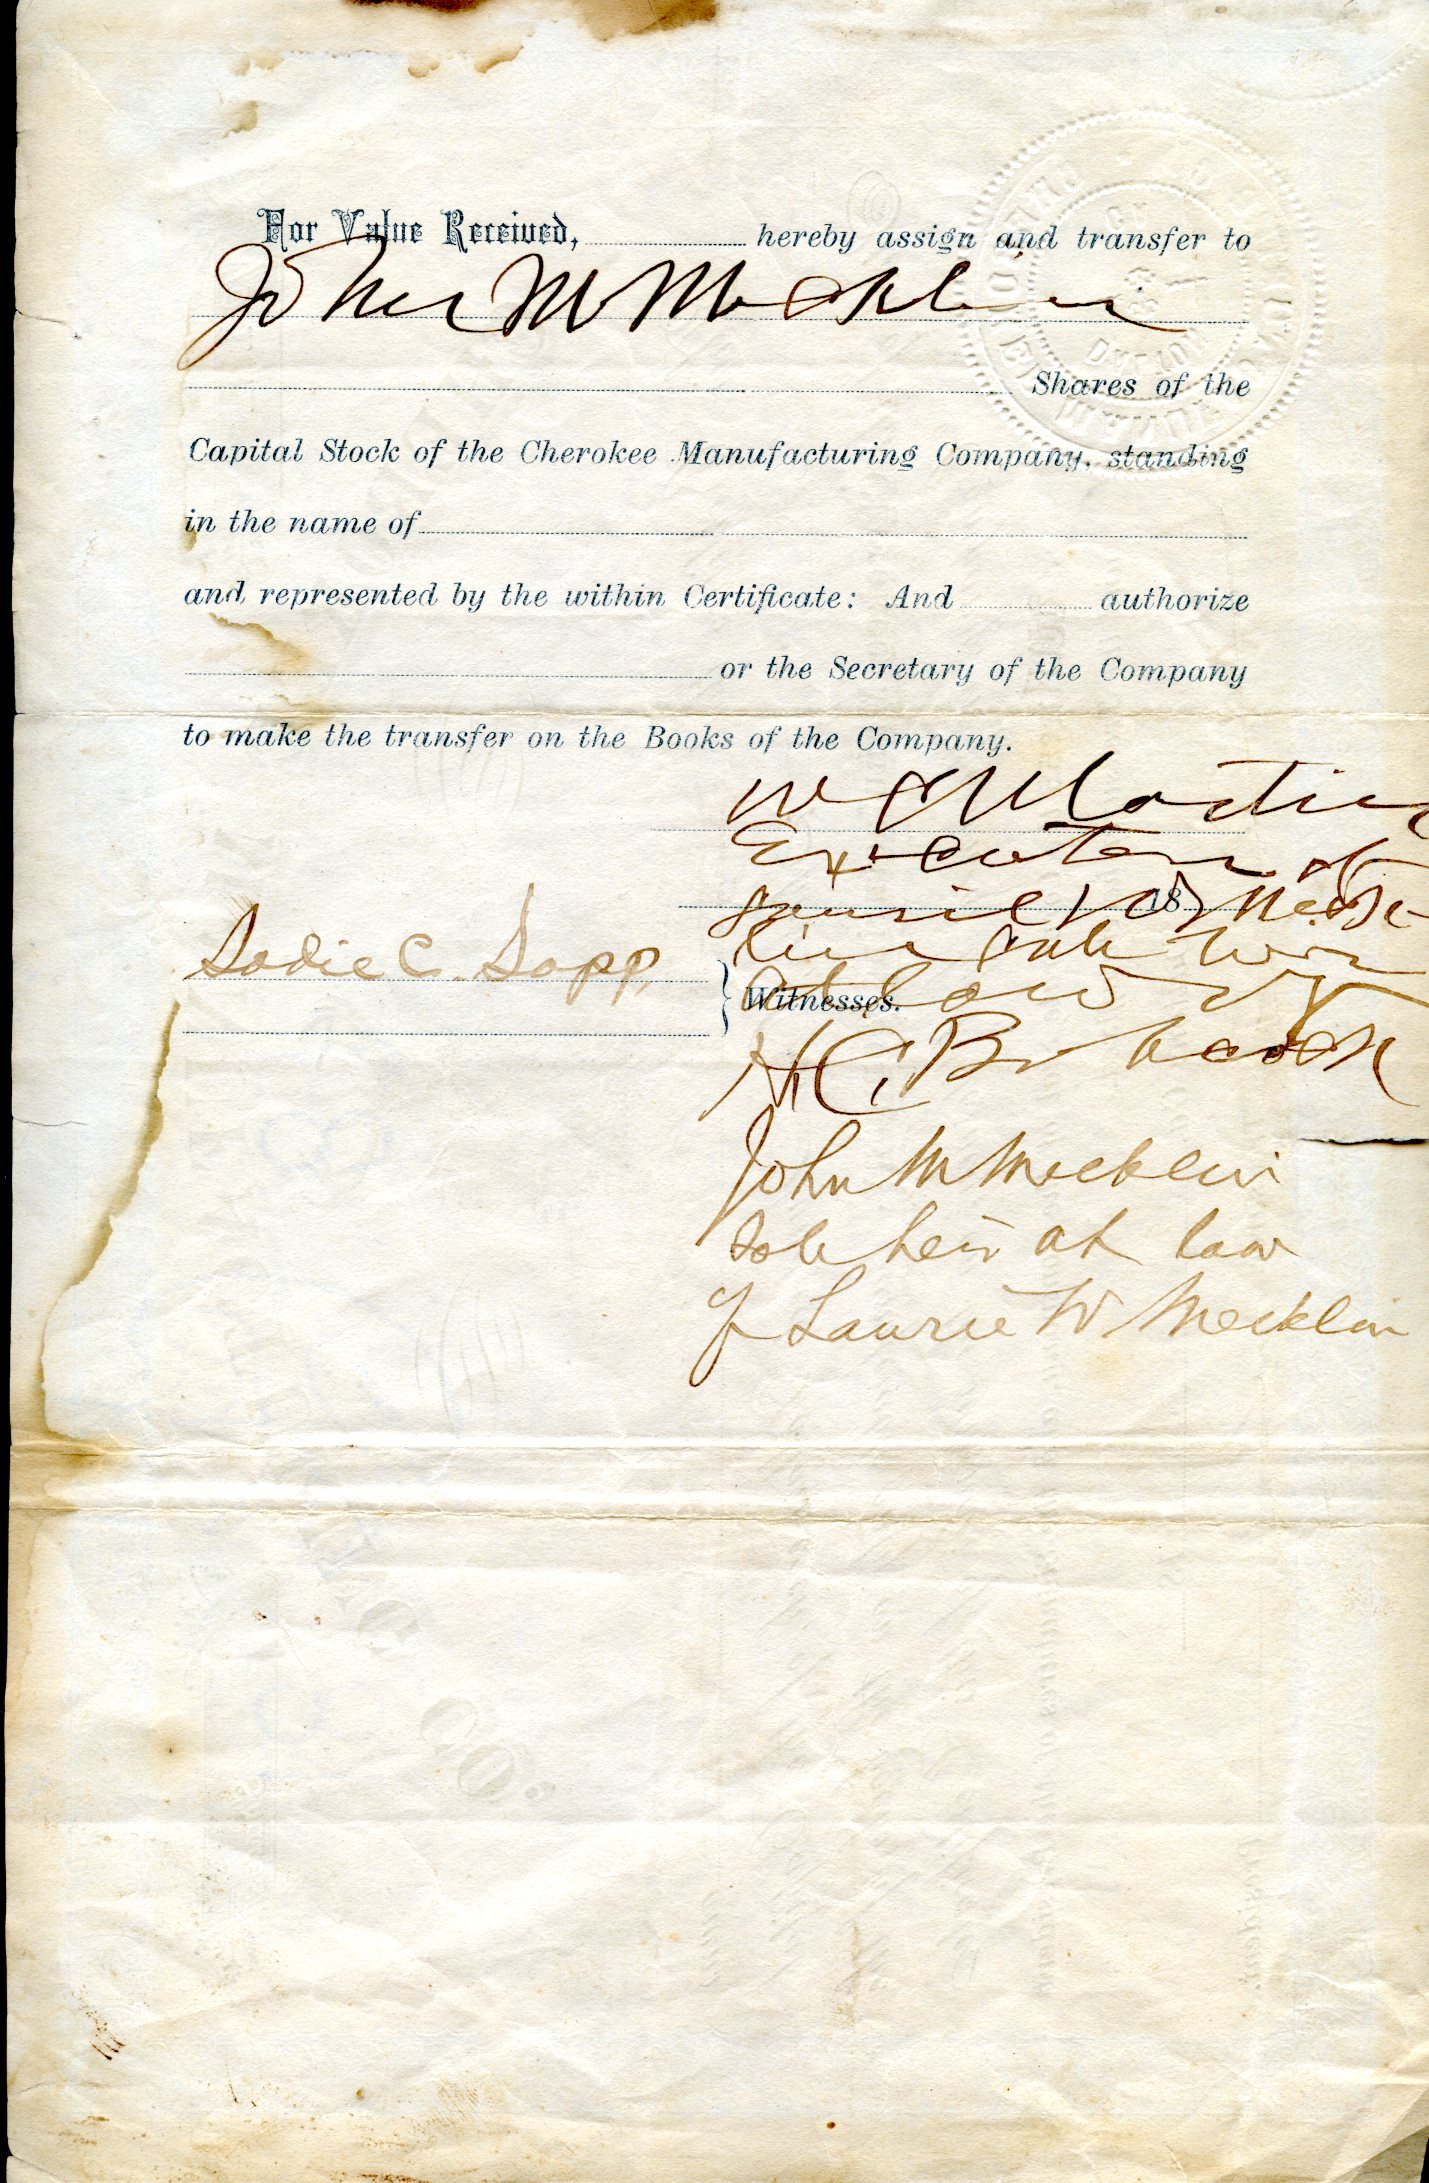 For Value Received, hereby assign and transfer to
John M Mecklin
Shares of the
Capital Stock of the Cherokee Manufacturing Company, standing
in the name of
and represented by the within Certificate: And authorize
or the Secretary of the Company
to make the transfer on the Books of the Company.
W Martin
Executor of
18
Sadie C Sapp
Witnesses.
at law
H C
John M Mecklin
sole heir at law
of Laurie W Mecklin